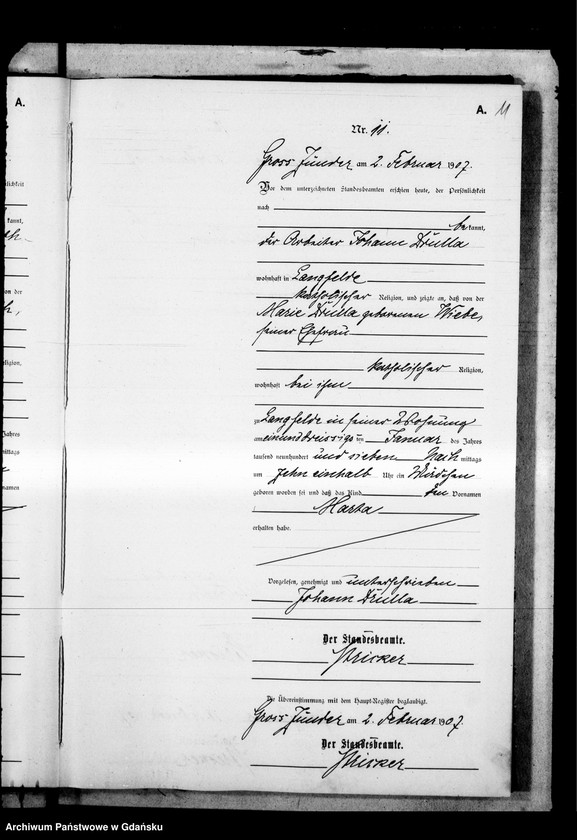 A.
A. 11
Nr. 11.
Gross Zünder am 2. Februar 1907.
Vor dem unterzeichneten Standesbeamten erschien heute, der Persönlichkeit
nach
bekannt,
der Arbeiter Johann Drulla
wohnhaft in Langfelde
katholischer Religion, und zeigte an, daß von der
Marie Drulla geborenen Wiebe,
seiner Ehefrau
katholischer Religion,
wohnhaft bei ihm
zu Langfelde in seiner Wohnung
am einunddreissigsten Januar des Jahres
tausend neunhundert und sieben Nachmittags
um zehn einhalb Uhr ein Mädchen
geboren worden sei und daß das Kind den Vornamen
Marta
erhalten habe.
Vorgelesen, genehmigt und unterschrieben
Johann Drulla
Der Standesbeamte.
Stricker
Die Übereinstimmung mit dem Haupt-Register beglaubigt.
Gross Zünder am 2. Februar 1907.
Der Standesbeamte.
Stricker
Archiwum Państwowe w Gdańsku